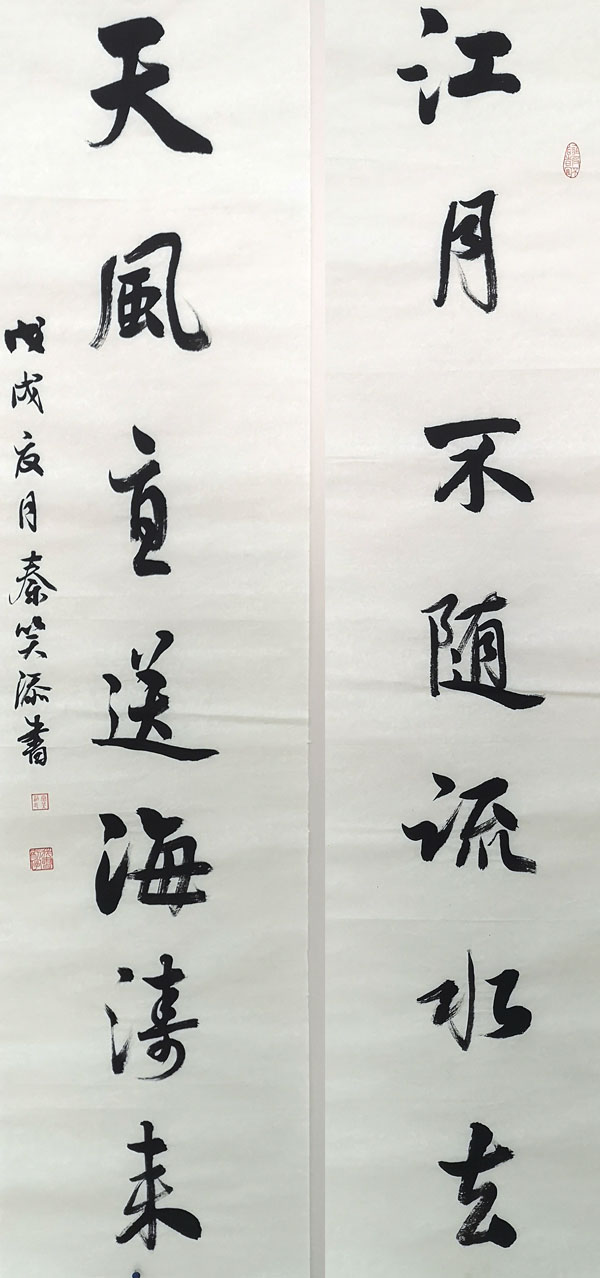 江月不随流水去
天風直送海涛来
戊戌夏月秦笑添書